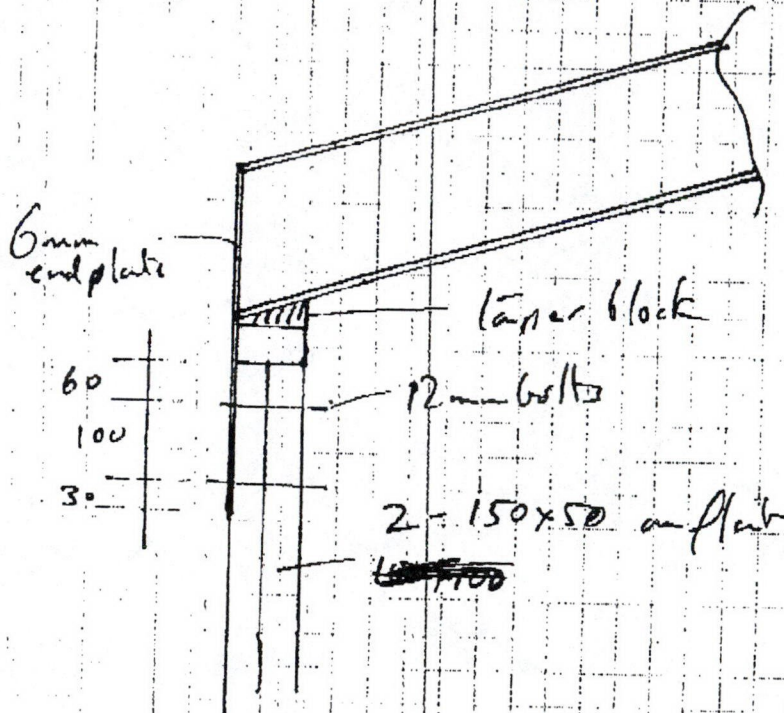 6mm
end plate
taper block
60
12mm bolts
100
30
2 - 150x50 on flat